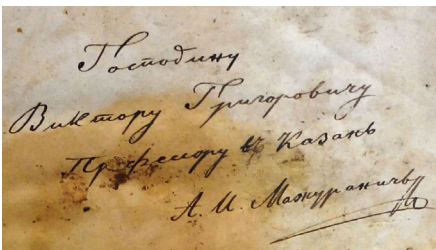 Господину
Виктору Григоровичу
Профессору въ Казань
А. И. Мажураничъ